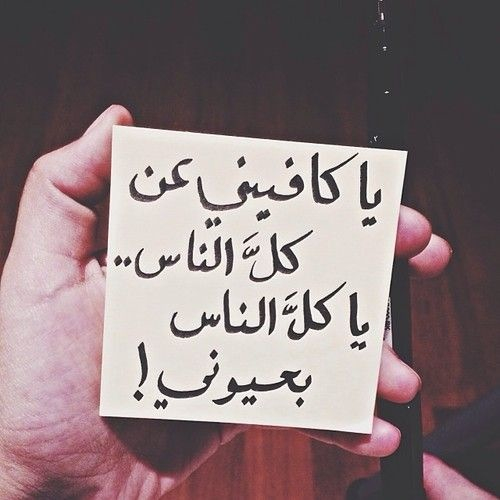 يا كافيني عن
كلَّ الناس..
يا كلَّ الناس
بعيوني!